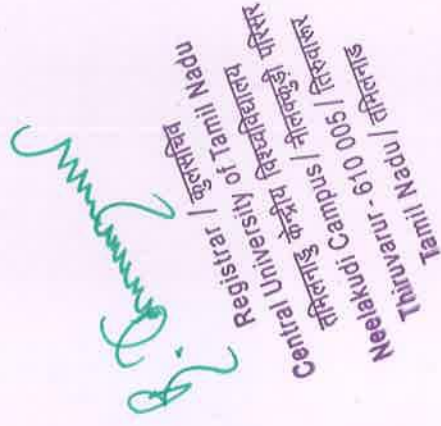 Registrar / कुलसचिव
Central University of Tamil Nadu
तमिलनाडु केन्द्रीय विश्वविद्यालय
Neelakudi Campus / नीलकुड़ी परिसर
Thiruvarur - 610 005 / तिरुवारूर
Tamil Nadu / तमिलनाडु